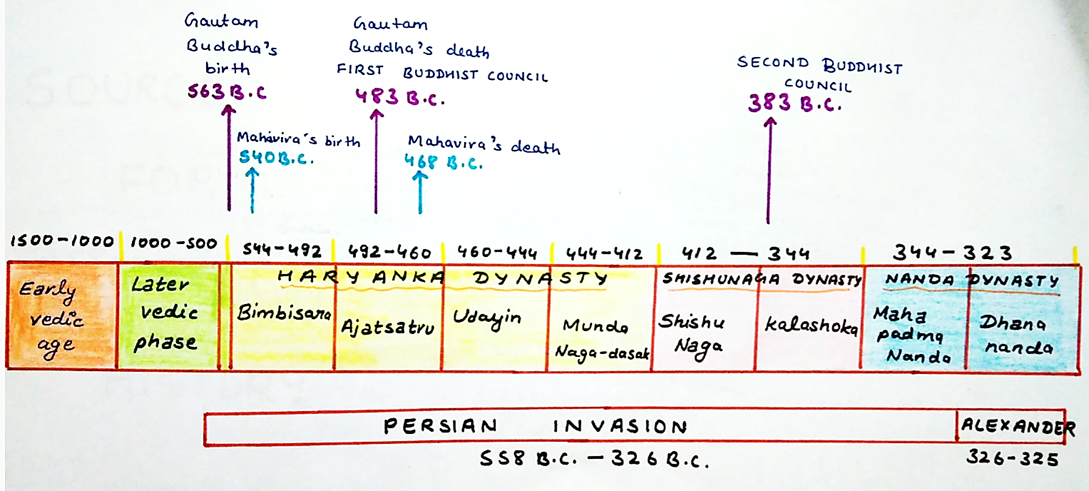 Gautam
Buddha's
birth
563 B.C
Gautam
Buddha's death
FIRST BUDDHIST COUNCIL
483 B.C.
SECOND BUDDHIST
COUNCIL
383 B.C.
Mahavira's birth
540 B.C.
Mahavira's death
468 B.C.
1500-1000 1000-500 544-492 492-460 460-444 444-412 412 — 344 344-323
HARYANKA DYNASTY SHISHUNAGA DYNASTY NANDA DYNASTY
Early
vedic
age
Later
vedic
phase
Bimbisara
Ajatsatru
Udayin
Munda
Naga-dasak
Shishu
Naga
Kalashoka
Maha
padma
Nanda
Dhana
nanda
PERSIAN INVASION ALEXANDER
558 B.C. - 326 B.C. 326-325